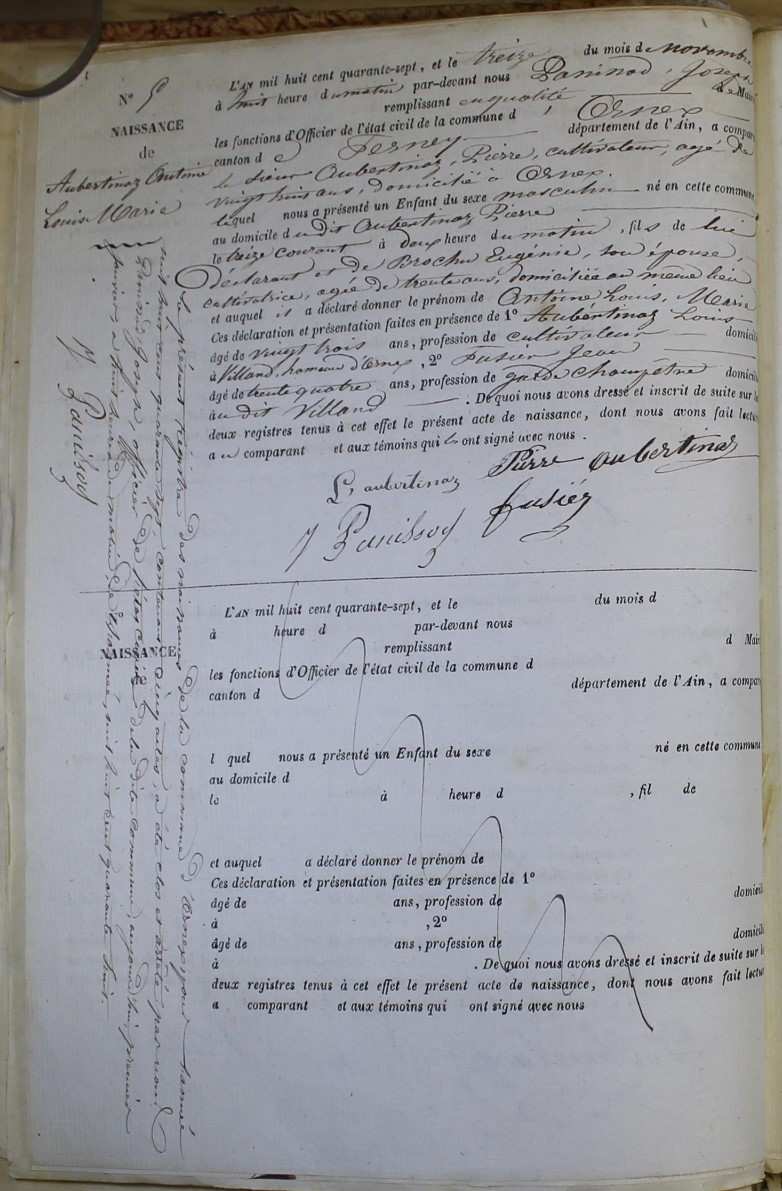 N° 5
NAISSANCE
de
Aubertinaz Antoine
Louis Marie
L'AN mil huit cent quarante-sept, et le treize du mois de novembre
à huit heure du matin par-devant nous Panissod, Joseph
remplissant en qualité de Maire
les fonctions d'Officier de l'état civil de la commune d'Ornex
canton de Ferney département de l'Ain, a compar
le sieur Aubertinaz, Pierre, cultivateur, agé de
vingt huit ans, domicilié à Ornex.
lequel nous a présenté un Enfant du sexe masculin né en cette commune
au domicile du dit Aubertinaz Pierre
le treize courant à deux heure du matin, fils de lui
Déclarant et de Brochu Eugénie, son épouse,
cultivatrice, agée de trente ans, domiciliée au même lieu
et auquel il a déclaré donner le prénom de Antoine Louis, Marie
Ces déclaration et présentation faites en présence de 1° Aubertinaz Louis
âgé de vingt trois ans, profession de cultivateur domicili
à Villard, hameau d'Ornex, 2° Fusier Jean
âgé de trente quatre ans, profession de garde champêtre domicili
à u dit Villard. De quoi nous avons dressé et inscrit de suite sur le
deux registres tenus à cet effet le présent acte de naissance, dont nous avons fait lectur
a u comparant et aux témoins qui les ont signé avec nous.
L. aubertinaz Pierre aubertinaz
J Panissod fusiéz
Le présent Registre des naissances de la commune d'Ornex pour l'année
mil huit cent quarante sept, contenant cinq actes a été clos et arrêté par nous
Panissod Joseph, officier de l'état civil de la dite commune, aujourd'hui premier
janvier à huit heures du matin de l'année mil huit cent quarante huit.
J Panissod
NAISSANCE
L'AN mil huit cent quarante-sept, et le du mois d
à heure d par-devant nous
remplissant d Mair
les fonctions d'Officier de l'état civil de la commune d
canton d département de l'Ain, a compar
l quel nous a présenté un Enfant du sexe né en cette commune
au domicile d
le à heure d , fil de
et auquel a déclaré donner le prénom de
Ces déclaration et présentation faites en présence de 1°
âgé de ans, profession de domicili
à , 2°
âgé de ans, profession de domicili
à . De quoi nous avons dressé et inscrit de suite sur le
deux registres tenus à cet effet le présent acte de naissance, dont nous avons fait lectur
a comparant et aux témoins qui ont signé avec nous